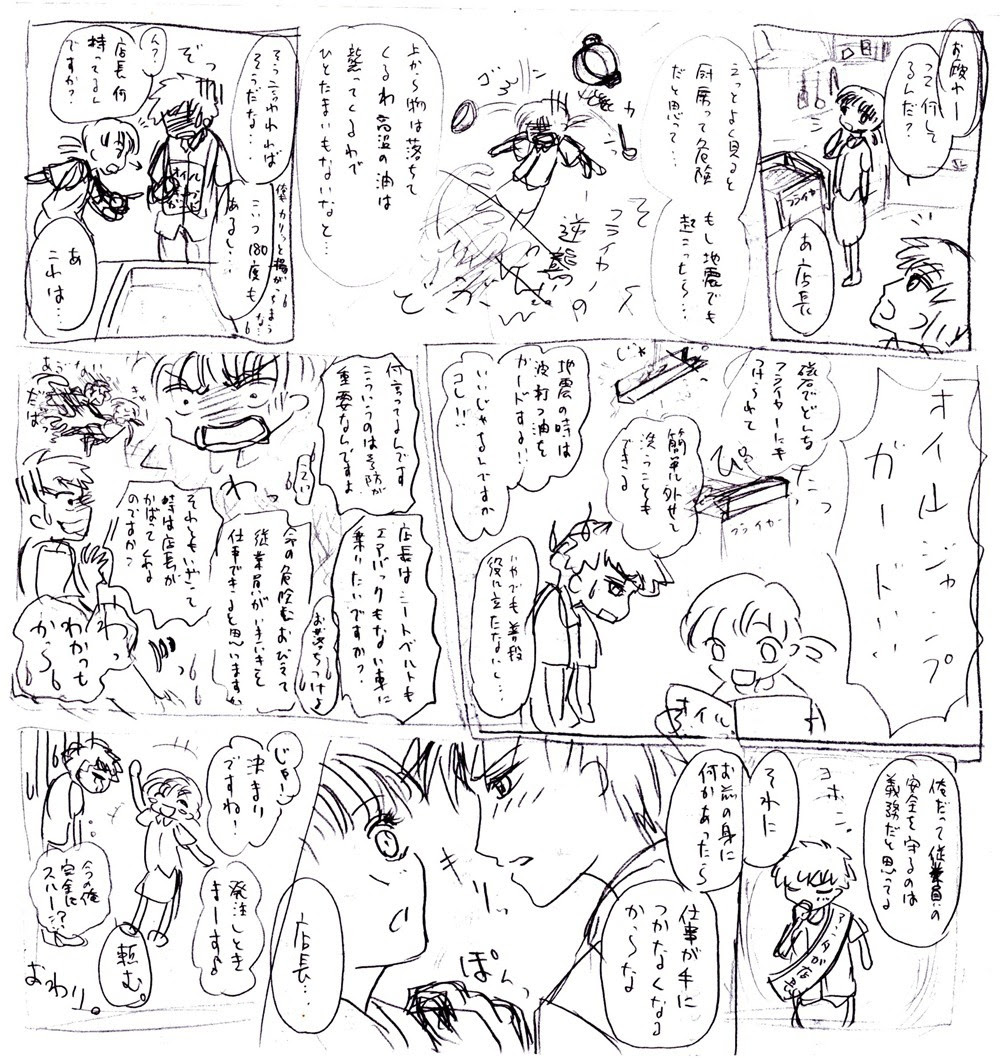 お疲れー
って何して
るんだ?
フライヤー
あ店長
えっとよく見ると
厨房って危険
だと思って…
もし地震でも
起こったら…
カ
ゴッ
フライヤー
逆襲
の
上から物は落ちて
くるわ高温の油は
襲ってくるわで
ひとたまりもないなと…
ぞっ
そう言われれば
そうだな…
こいつ180度も
あるし…
ん?
店長何
持ってるん
ですか?
オイル
あ
これは…
オイルジャンプ
ガード!!
磁石でどんな
フライヤーにも
つけられて
たっ
ぴっ
フライヤー
簡単に外せて
洗うことも
できる
じゃっ
地震の時は
波打つ油を
ガードする!!
いいじゃないですか
コレ!!
いやでも普段
役に立たないし…
オイル
何言ってるんです
こういうのは予防が
重要なんですよ
店長はシートベルトも
エアバックもない車に
乗りたいですか?
お落ちつけよ
今の危険におびえて
従業員がいきいきと
仕事できると思いますか
わっ
それともいざって
時は店長が
かばってくれる
のですか?
わっ
わかった
から
俺だって従業員の
安全を守るのは
義務だと思ってる
コホン
それに
お前の身に
何かあったら
仕事が手に
つかなくなる
からな
キリッ
ぽんっ
店長…
じゃー
決まり
ですね!
発注しとき
まーす♪
頼む。
今の俺
完全に
スルー!?
おわり。